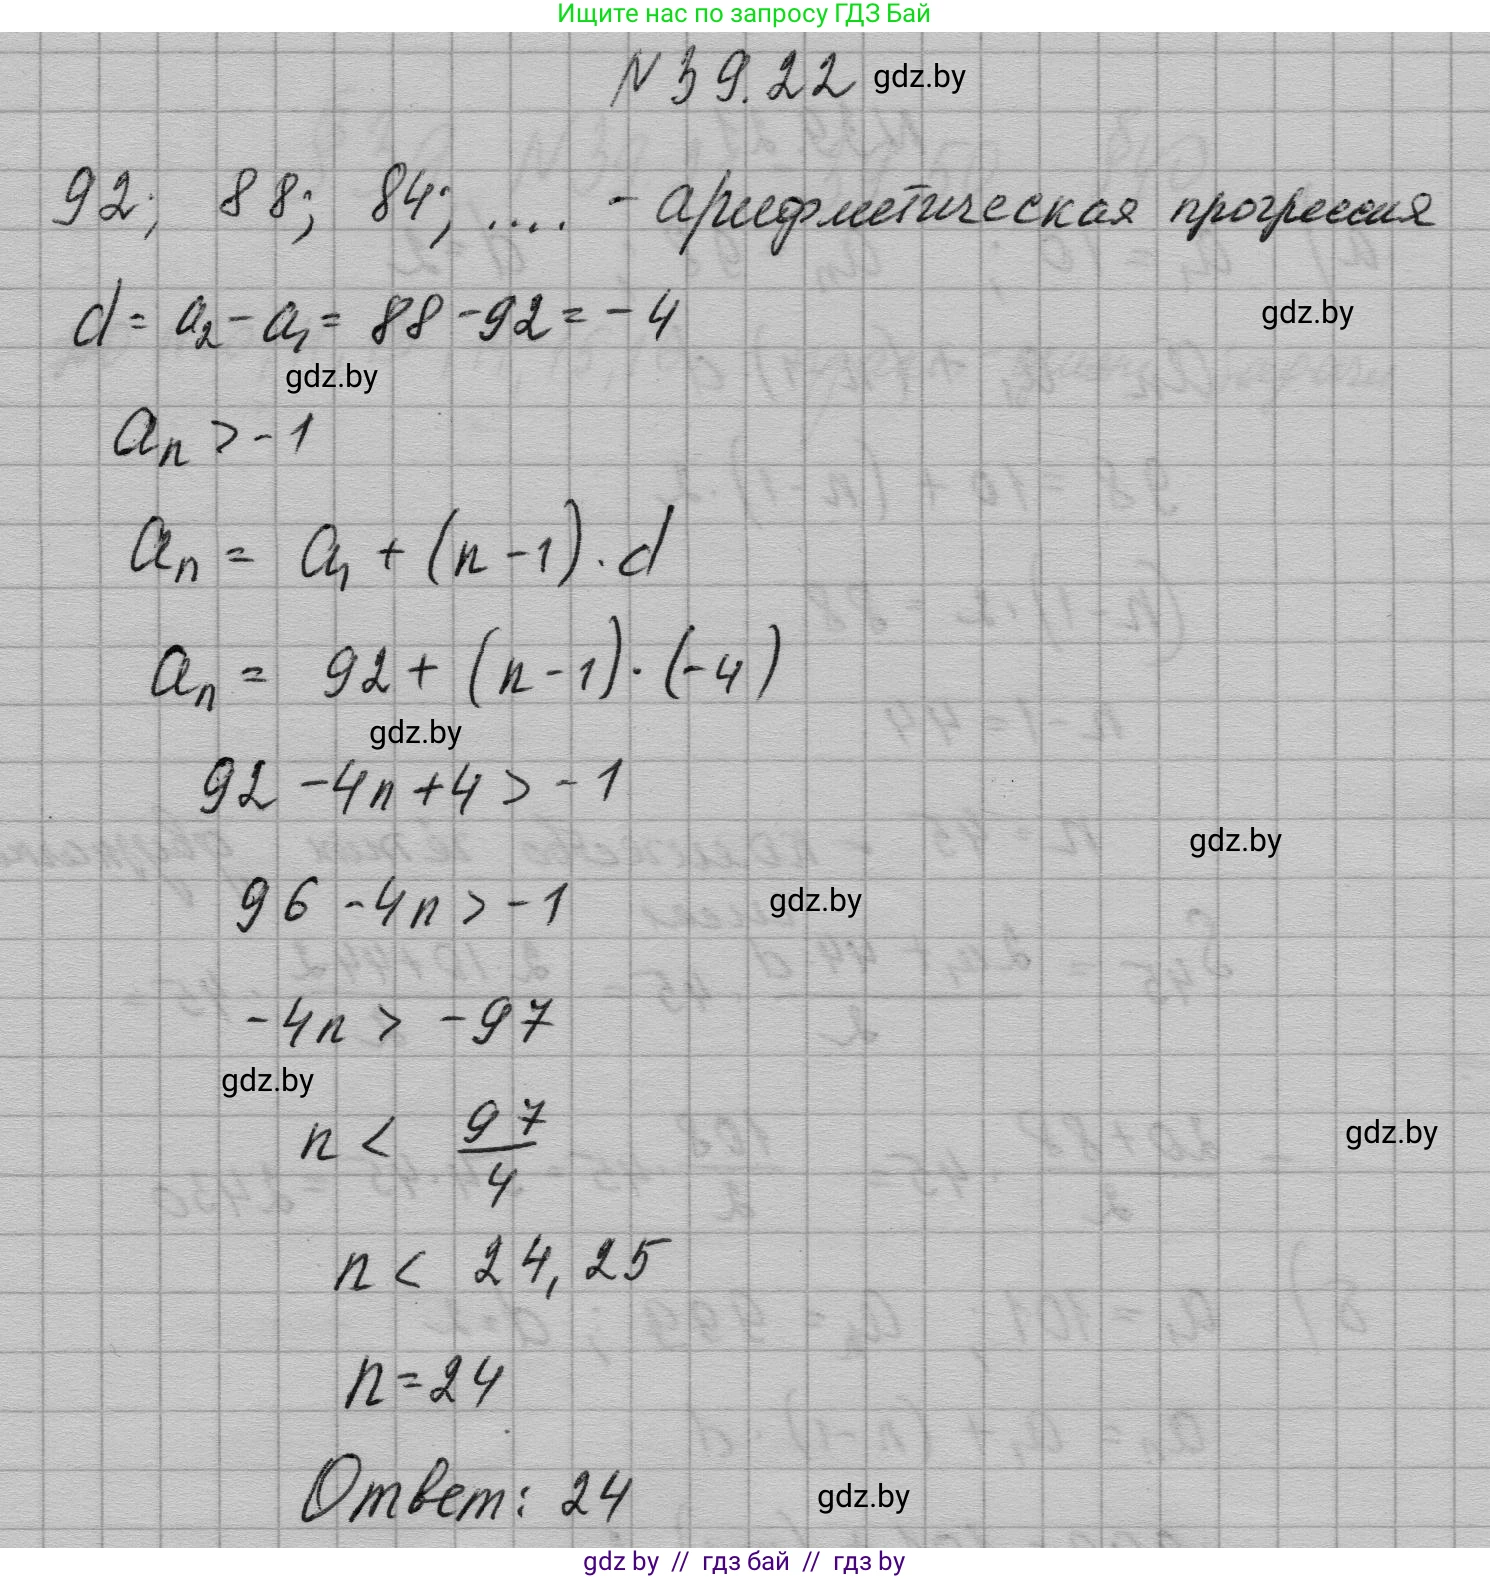 Ищите нас по запросу ГДЗ Бай
N 39.22 gdz.by
92; 88; 84; .... - арифметическая прогрессия
d = a₂ - a₁ = 88 - 92 = - 4
gdz.by
gdz.by
aₙ > - 1
aₙ = a₁ + (n - 1) · d
aₙ = 92 + (n - 1) · (-4)
gdz.by
92 - 4n + 4 > - 1
gdz.by
96 - 4n > - 1
gdz.by
-4n > -97
gdz.by
n < 97/4
gdz.by
n < 24,25
n = 24
Ответ: 24
gdz.by
gdz by // гдз бай // гдз by